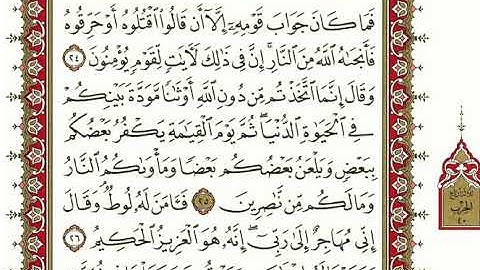 فَمَا كَانَ جَوَابَ قَوْمِهِۦٓ إِلَّآ أَن قَالُوا۟ ٱقْتُلُوهُ أَوْ حَرِّقُوهُ
فَأَنجَىٰهُ ٱللَّهُ مِنَ ٱلنَّارِ ۚ إِنَّ فِى ذَٰلِكَ لَـَٔايَٰتٍ لِّقَوْمٍ يُؤْمِنُونَ ٢٤
وَقَالَ إِنَّمَا ٱتَّخَذْتُم مِّن دُونِ ٱللَّهِ أَوْثَٰنًا مَّوَدَّةَ بَيْنِكُمْ
فِى ٱلْحَيَوٰةِ ٱلدُّنْيَا ۖ ثُمَّ يَوْمَ ٱلْقِيَٰمَةِ يَكْفُرُ بَعْضُكُم
بِبَعْضٍ وَيَلْعَنُ بَعْضُكُم بَعْضًا وَمَأْوَىٰكُمُ ٱلنَّارُ
وَمَا لَكُم مِّن نَّٰصِرِينَ ٢٥ ۞ فَـَٔامَنَ لَهُۥ لُوطٌ ۘ وَقَالَ
إِنِّى مُهَاجِرٌ إِلَىٰ رَبِّىٓ ۖ إِنَّهُۥ هُوَ ٱلْعَزِيزُ ٱلْحَكِيمُ ٢٦
الحزب
٤٠